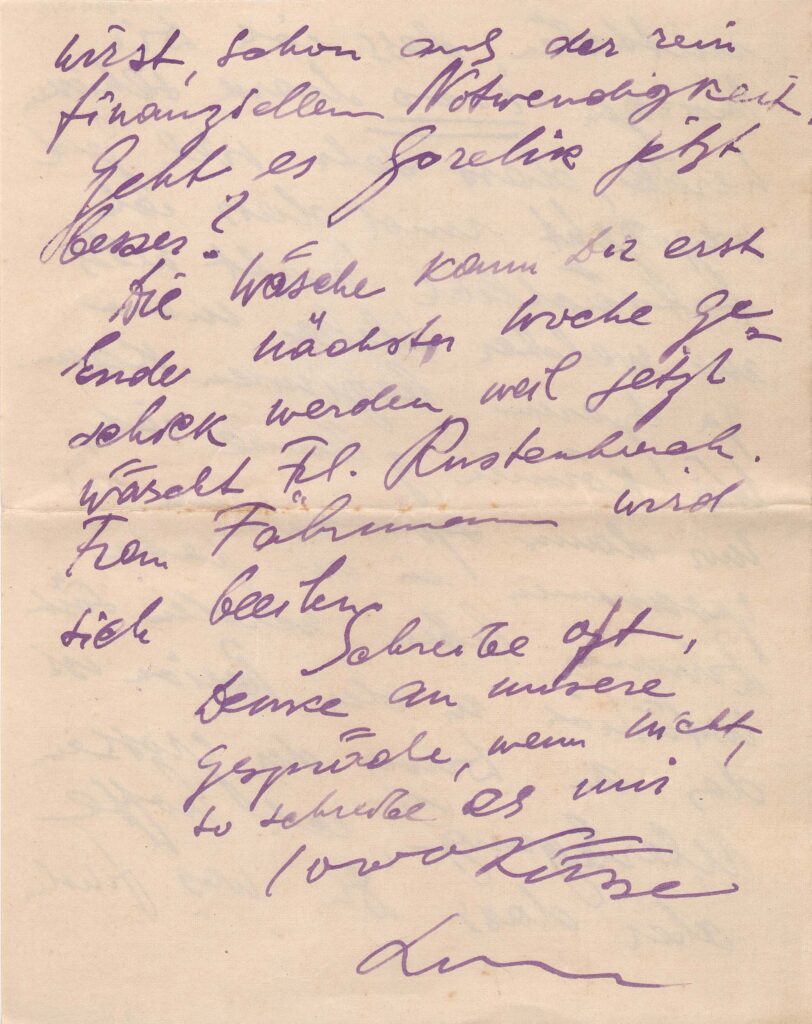 wirst, schon aus der rein
finanziellen Notwendigkeit.
Geht es Gorelik jetzt
besser?
Die Wäsche kann Dir erst
Ende nächster Woche ge=
schick werden weil jetzt
wäscht Frl. Rustenbach.
Frau Fährmann wird
sich beeilen
Schreibe oft,
Denke an unsere
Gespräche, wenn nicht,
so schreibe es mir
1000 Küsse